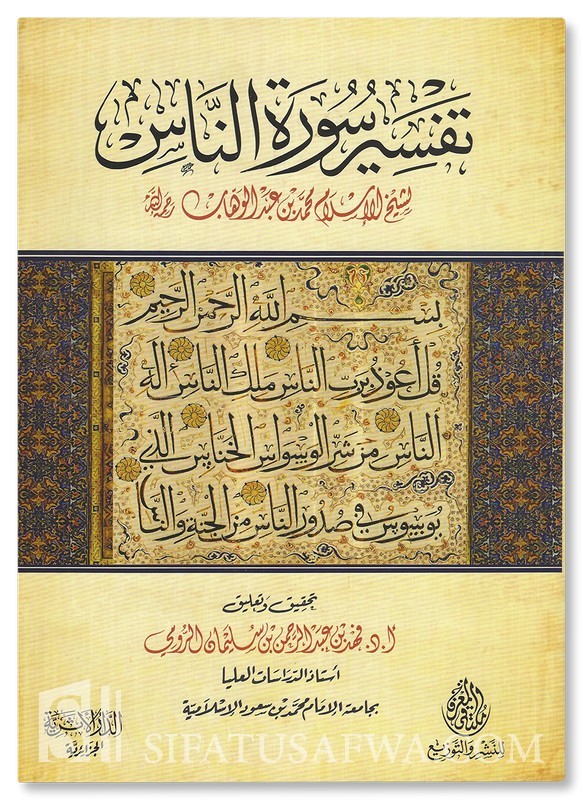 تَفْسِيرُ سُورَةِ النَّاسِ
لشيخ الإسلام محمد بن عبد الوهاب رحمه الله
بسم الله الرحمن الرحيم
قل أعوذ برب الناس ملك الناس اله
الناس من شر الوسواس الخناس الذي
يوسوس في صدور الناس من الجنة والناس
تحقيق وتعليق
أ. د. فهد بن عبد الرحمن بن سليمان الرومي
أستاذ الدراسات العليا
بجامعة الإمام محمد بن سعود الإسلامية
الدار الأثرية
الجزائرية
للنشر والتوزيع
SIFATUSAFWA.COM